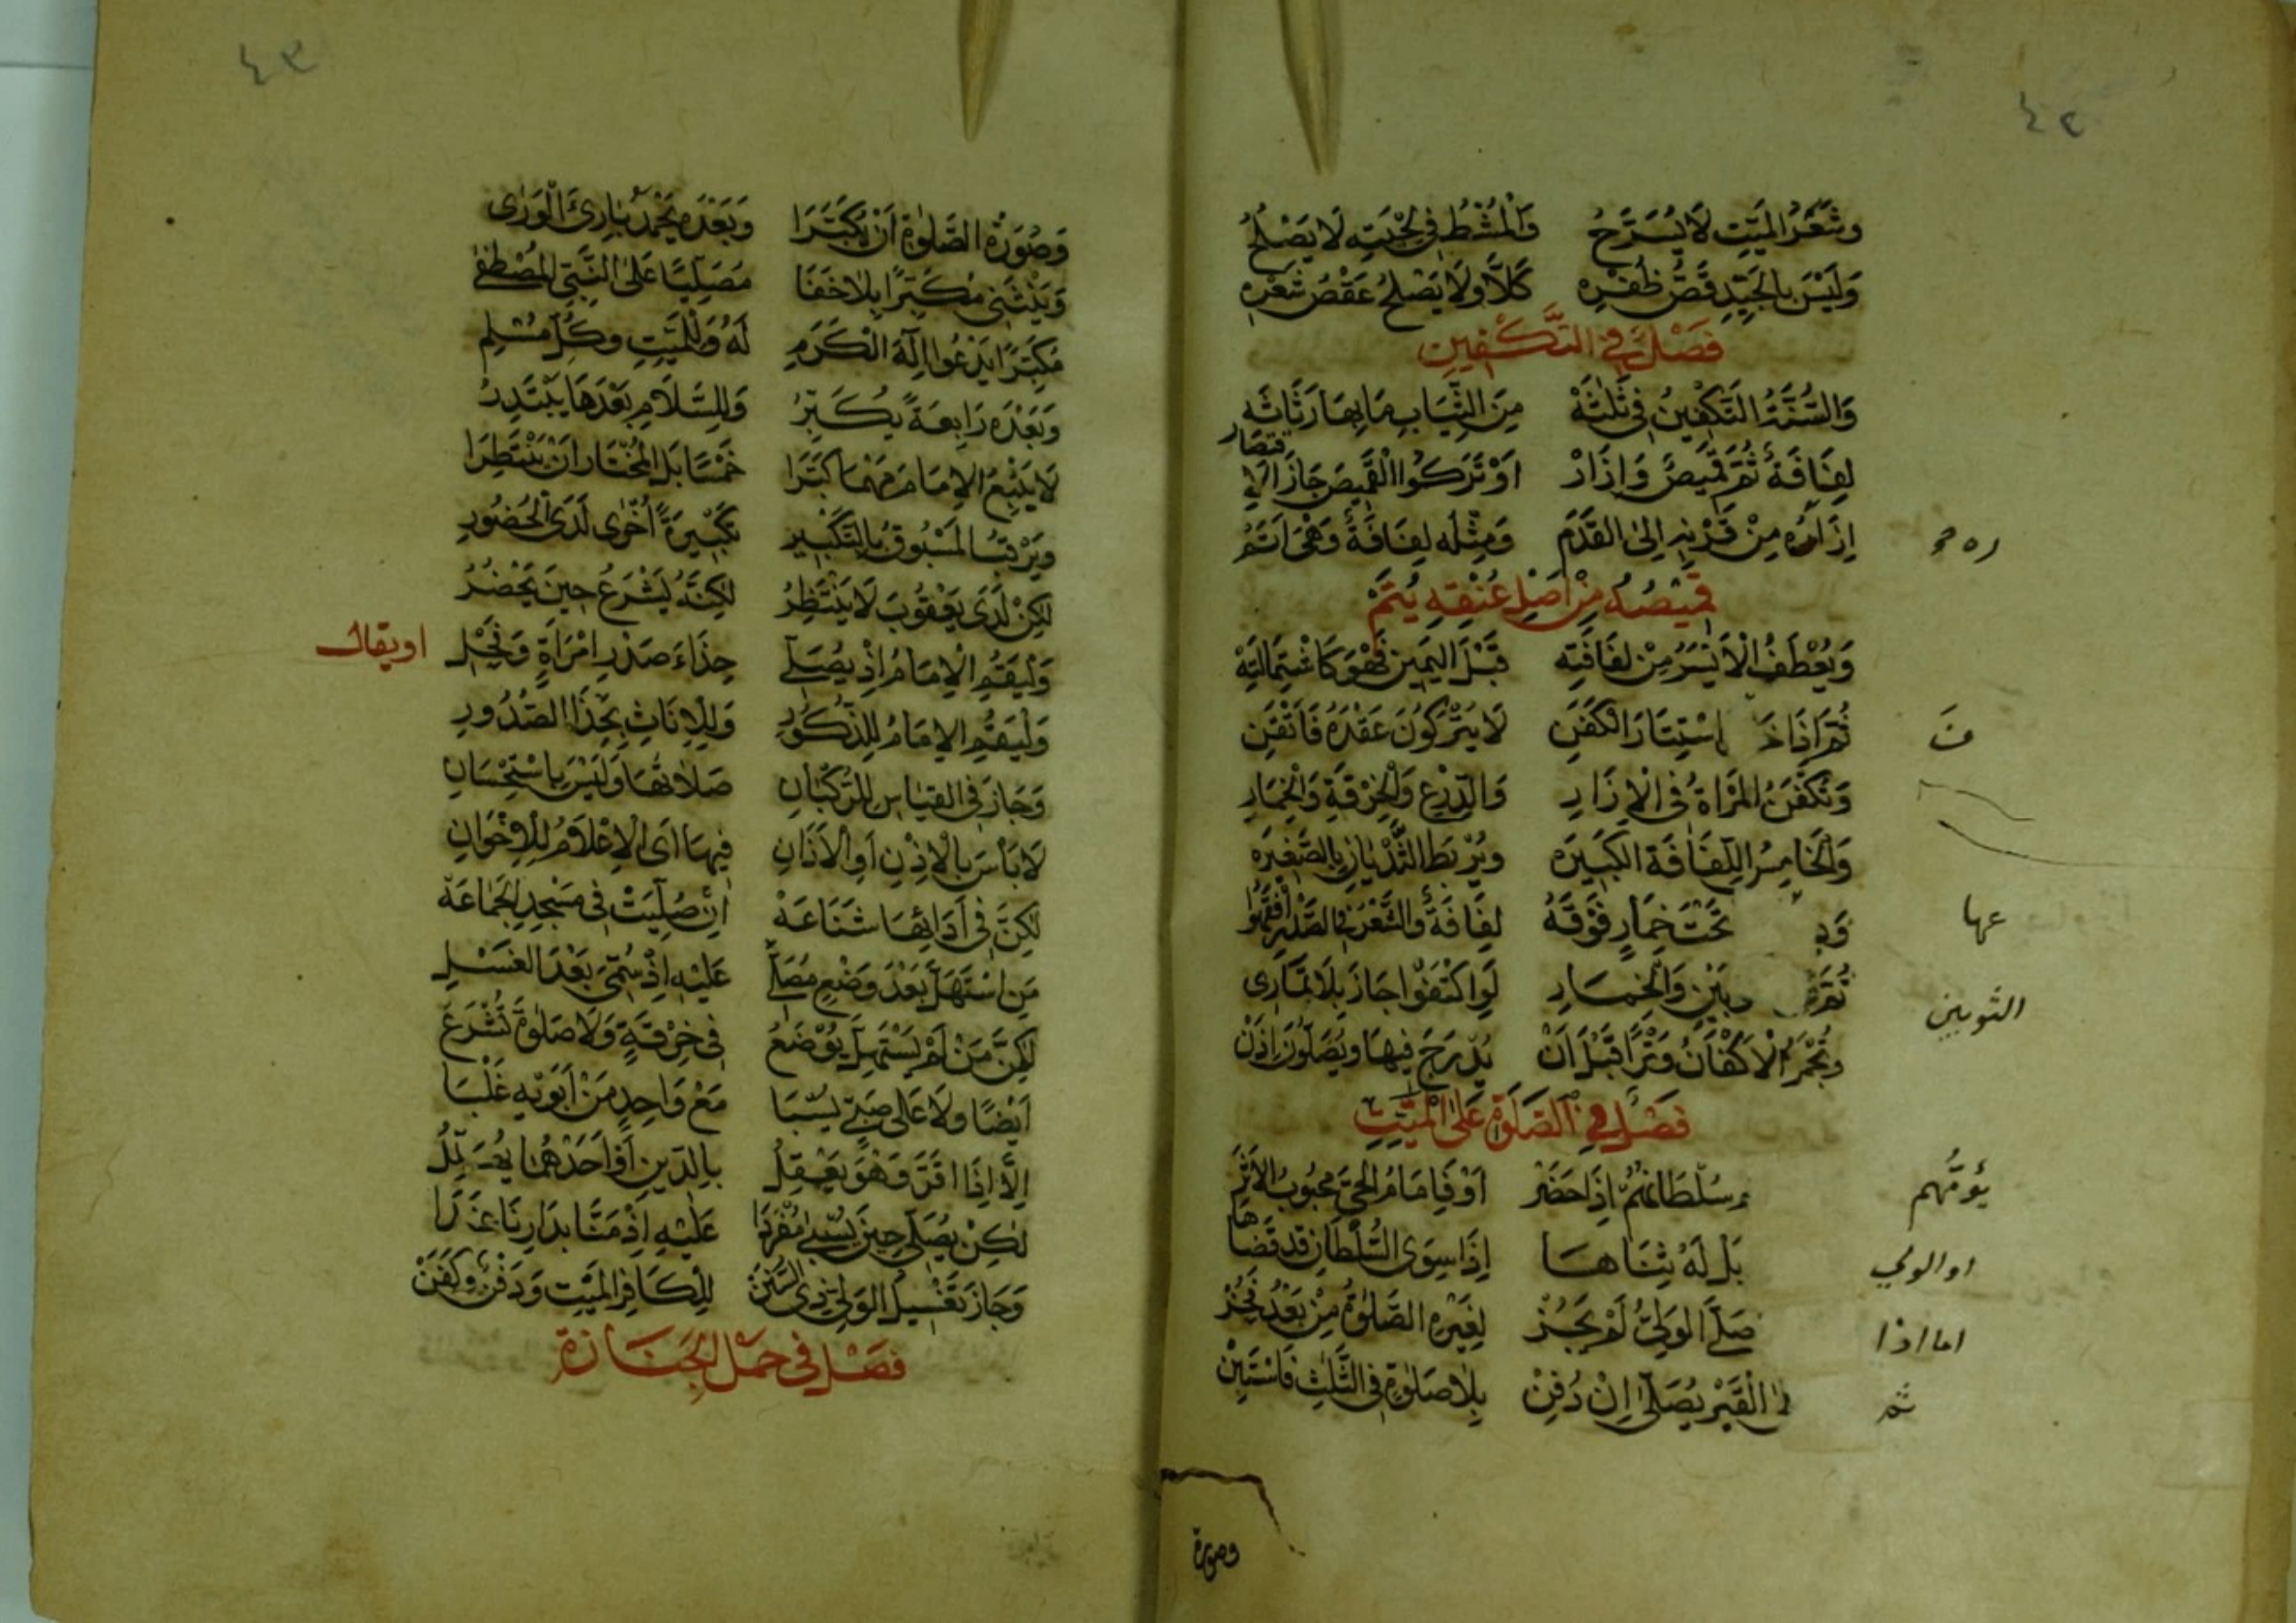 ٤٢
وشعر الميت لا يسرح والمشط في لحيته لا يصلح
وليس بالجيد قص ظفره كلا ولا يصلح عقص شعره
فصل في التكفين
والسنة التكفين في ثلثة من الثياب ما بها رثاثه
لفافة ثم قميص وازار او تركوا القميص جاز الاقتصار
ازاره من قرنه الى القدم ومثله لفافة وهي اتم
قميصه من اصل عنقه يتم
ويعطف الايسر من لفافته قبل اليمين فهو كاشتماليه
ثم اذا خف استتار الكفن لا يتركون عقده فاتقن
وتكفن المراة في الازار والدرع والخرقة والخمار
والخامس اللفافة الكبيره ويربط الثديان بالصغيره
عها تحت خمار فوقه لفافة والشعر في الصدر
ثم الثوبين والخمار لو اكتفوا جاز بلا تماري
وتجمر الاكفان وترا قبل ان يدرج فيها ويصلون اذن
فصل في الصلوة على الميت
يؤمهم سلطانهم اذا حضر او فامام الحي محبوب الاثر
او الولي بل له ثناها اذا سوى السلطان قد قضاها
اما اذا صلى الولي لم يجز لغيره الصلوة من بعد
ثم القبر يصلى ان دفن بلا صلوة في الثلث فاستبن
وصورة
٤٣
وصورة الصلوة ان يكبرا وبعده يحمد بارئ الورى
وينثني مكبرا بلا خفا مصليا على النبي المصطفى
مكبرا يدعوا اله الكرم له وللميت وكل مسلم
وبعده رابعة يكبر وللسلام بعدها يبتدر
لا يتبع الامام مهما كبرا خمسا بل المختار ان ينتظرا
ويرقب المسبوق بالتكبير تكبيرة اخرى لدى الحضور
لكن لدى يعقوب لا ينتظر لكنه يشرع حين يحضر
وليقم الامام اذ يصلي حذاء صدر امراة وفحل
او يقال
وليقم الامام للذكور وللاناث بحذا الصدور
وجاز في القياس للركبان صلاتها وليس باستحسان
لا باس بالاذن او الاذان فيها اى الاعلام للاخوان
لكن في ادائها شناعة ان صليت في مسجد الجماعة
من استهل بعد وضع مصلى عليه اذ سمى بعد الغسل
لكن من لم يستهل يوضع في خرقة ولا صلوة تشرع
ايضا ولا على صبي يسبا مع واحد من ابويه غلبا
الا اذا اقر وهو يعقل بالدين او احدهما
لكن يصلى حين يسبى مفردا عليه اذ مات بدارنا
وجاز تغسيل الولي ذي السنن للكافر الميت ودفن وكفن
فصل في حمل الجنازة